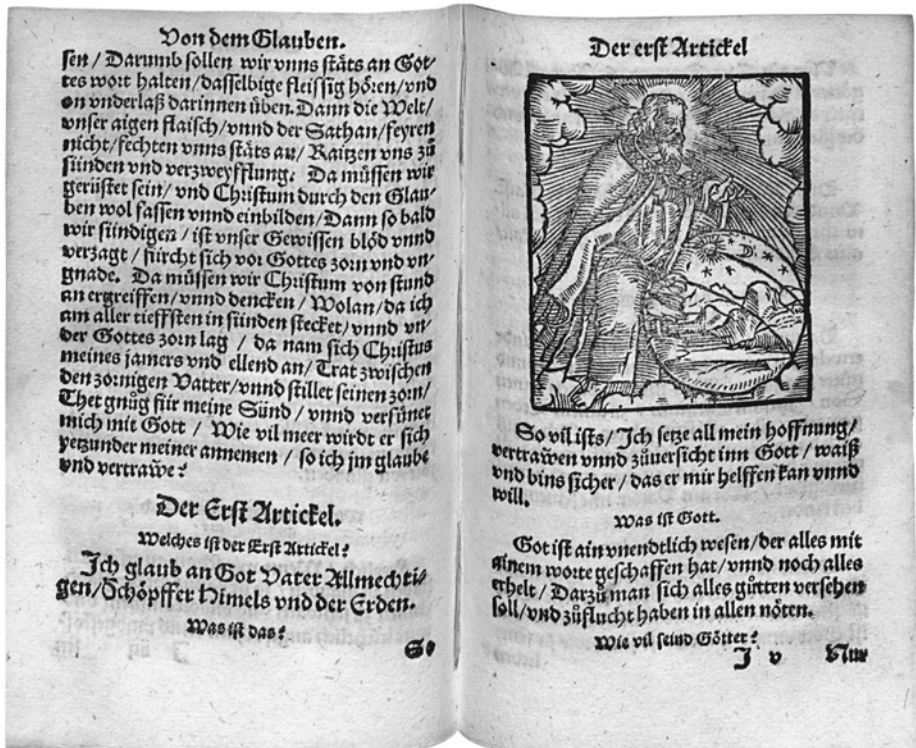 Von dem Glauben.
sen / Darumb sollen wir vnns stäts an Got-
tes wort halten/dasselbige fleissig hören/vnd
on vnderlaß darinnen üben. Dann die Welt/
vnser aigen flaisch/vnnd der Sathan/feyren
nicht/fechten vnns stäts an/ Raitzen vns zů
sünden vnd verzweyfflung. Da müssen wir
gerüstet sein/ vnd Christum durch den Glau-
ben wol fassen vnnd einbilden/Dann so bald
wir sündigen / ist vnser Gewissen blöd vnnd
verzagt / fürcht sich vor Gottes zorn vnd vn-
gnade. Da müssen wir Christum von stund
an ergreiffen/vnnd dencken / Wolan/da ich
am aller tieffsten in sünden stecket/ vnnd vn-
der Gottes zorn lag / da nam sich Christus
meines jamers vnd ellend an/ Trat zwischen
den zornigen Vatter/vnnd stillet seinen zorn/
Thet gnůg für meine Sünd / vnnd versünet
mich mit Gott / Wie vil meer wirdt er sich
yetzunder meiner annemen / so ich jm glaube
vnd vertrawe?
Der Erst Artickel.
Welches ist der Erst Artickel?
Ich glaub an Got Vater Allmechti-
gen/Schöpffer Himels vnd der Erden.
Was ist das?
So
Der erst Artickel
So vil ists/ Ich setze all mein hoffnung/
vertrawen vnnd zůuersicht inn Gott / waiß
vnd bins sicher / das er mir helffen kan vnnd
will.
Was ist Gott.
Got ist ain vnendtlich wesen/der alles mit
einem worte geschaffen hat/vnnd noch alles
erhelt / Darzů man sich alles gůtten versehen
soll/vnd zůflucht haben in allen nöten.
Wie vil seind Götter?
J v Nur